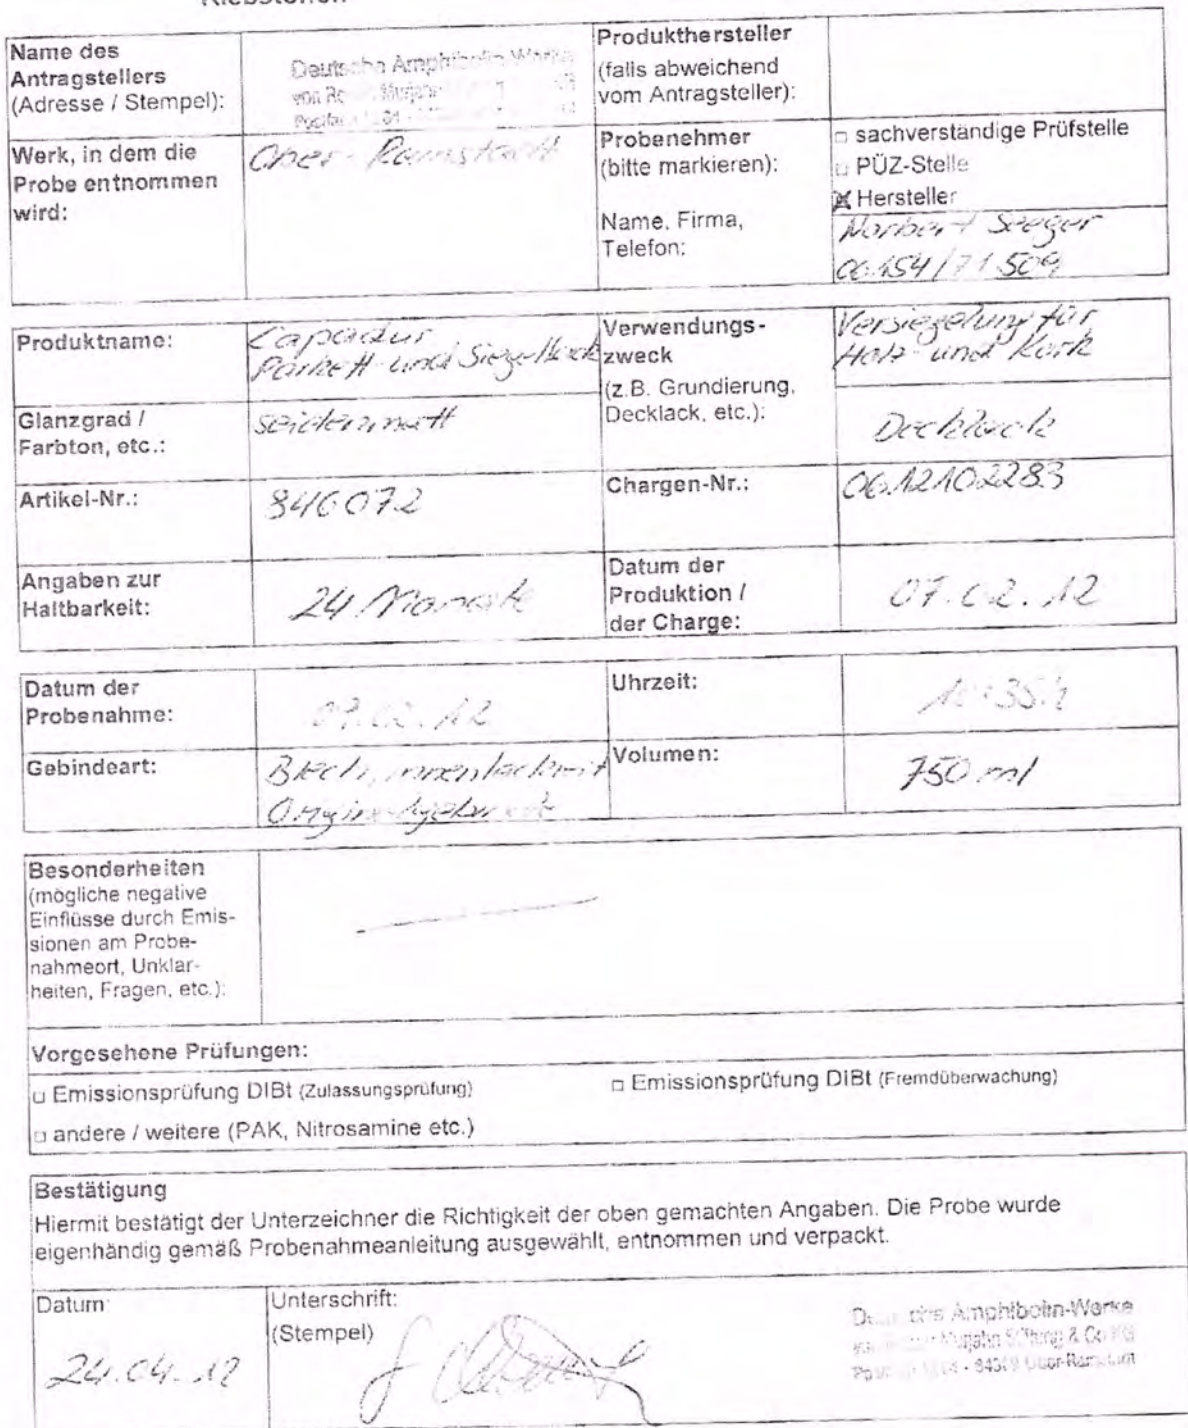 Name des
Antragstellers
(Adresse / Stempel):
Deutsche Amphibolin-Werke
Produkthersteller
(falls abweichend
vom Antragsteller):
Werk, in dem die
Probe entnommen
wird:
Ober-Ramstadt
Probenehmer
(bitte markieren):
Name, Firma,
Telefon:
□ sachverständige Prüfstelle
□ PÜZ-Stelle
☒ Hersteller
Norbert Seeger
06154/71509
Produktname:
Capadur
Parkett- und Siegellack
Verwendungs-
zweck
(z.B. Grundierung,
Decklack, etc.):
Versiegelung für
Holz- und Kork
Decklack
Glanzgrad /
Farbton, etc.:
seidenmatt
Artikel-Nr.:
846072
Chargen-Nr.:
0612102283
Angaben zur
Haltbarkeit:
24 Monate
Datum der
Produktion /
der Charge:
07.02.12
Datum der
Probenahme:
Uhrzeit:
Gebindeart:
Blech, innenlackiert
Originalgebinde
Volumen:
750 ml
Besonderheiten
(mögliche negative
Einflüsse durch Emis-
sionen am Probe-
nahmeort, Unklar-
heiten, Fragen, etc.):
Vorgesehene Prüfungen:
□ Emissionsprüfung DIBt (Zulassungsprüfung)
□ Emissionsprüfung DIBt (Fremdüberwachung)
□ andere / weitere (PAK, Nitrosamine etc.)
Bestätigung
Hiermit bestätigt der Unterzeichner die Richtigkeit der oben gemachten Angaben. Die Probe wurde
eigenhändig gemäß Probenahmeanleitung ausgewählt, entnommen und verpackt.
Datum:
24.04.12
Unterschrift:
(Stempel)
Amphibolin-Werke
Murjahn Stiftung & Co KG
Ober-Ramstadt